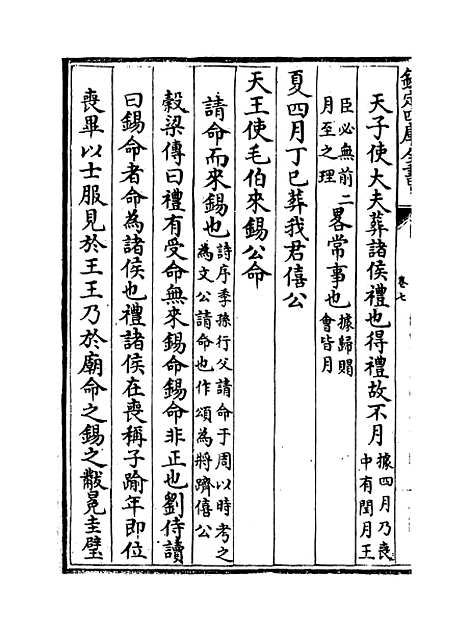 欽定四庫全書
卷七
天子使大夫葬諸侯禮也得禮故不月據四月乃喪中有閏月王
臣必無前二月至之理畧常事也據歸賵會皆月
夏四月丁巳葬我君僖公
天王使毛伯來錫公命
請命而來錫也詩序季孫行父請命于周以時考之為文公請命也作頌為將躋僖公
穀梁傳曰禮有受命無來錫命錫命非正也劉侍讀
曰錫命者命為諸侯也禮諸侯在喪稱子踰年即位
喪畢以士服見於王王乃於廟命之錫之黻冕圭璧